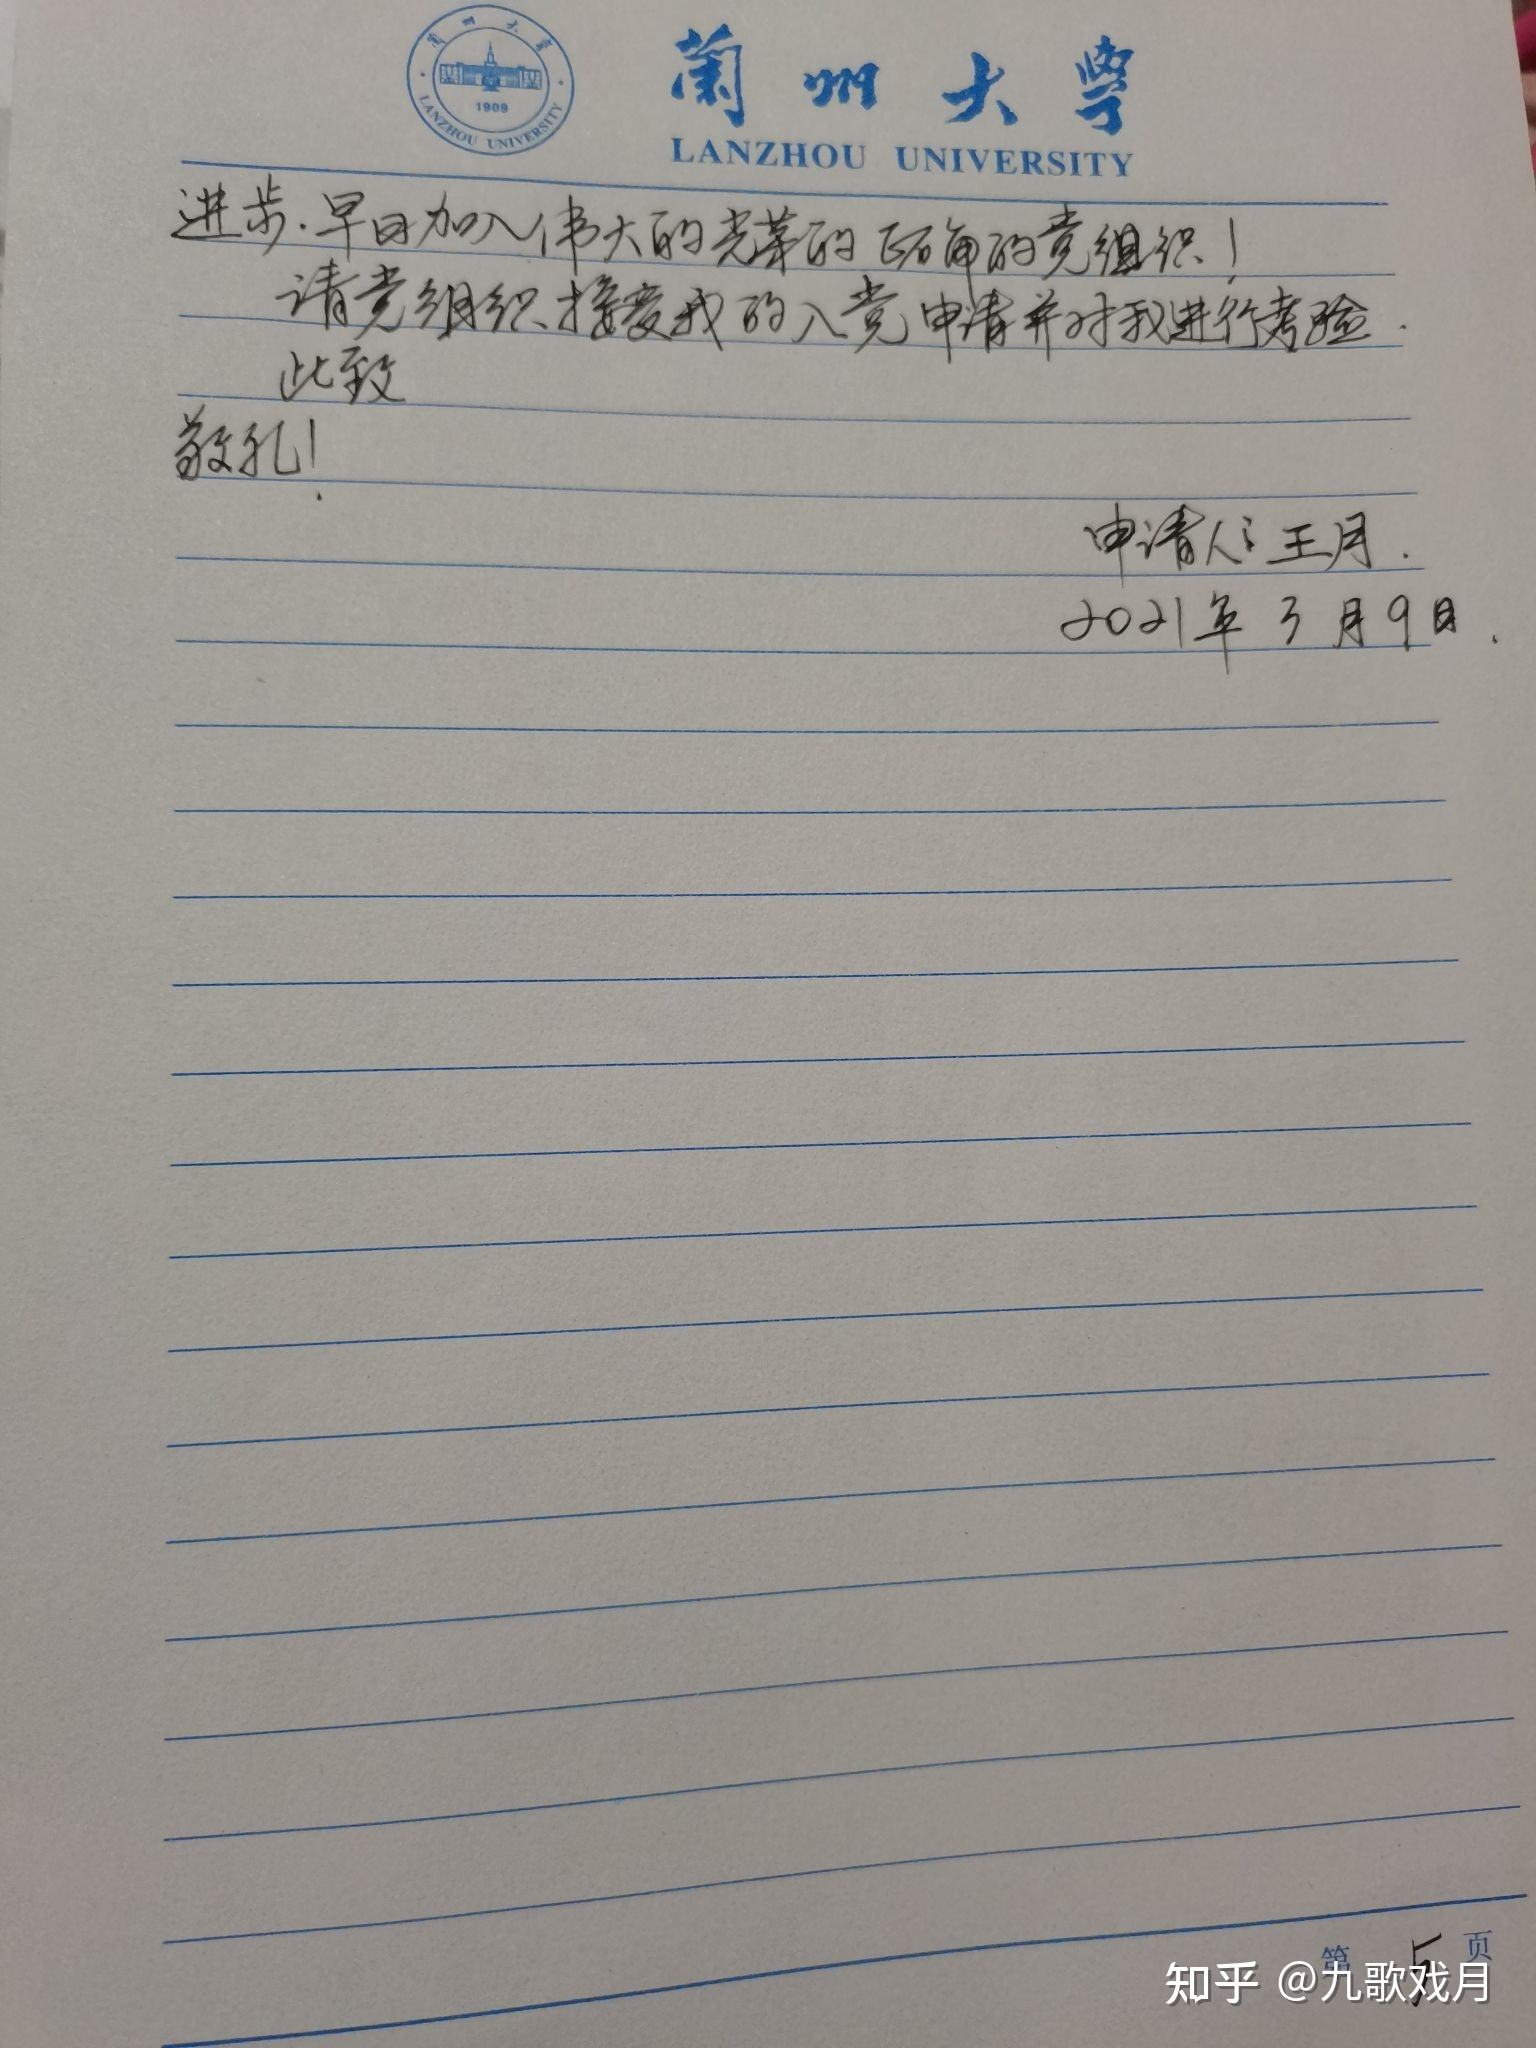 兰州大学
1909
LANZHOU UNIVERSITY
蘭州大學
LANZHOU UNIVERSITY
进步.早日加入伟大的光荣的正确的党组织!
请党组织接受我的入党申请并对我进行考验.
此致
敬礼!
申请人:王月.
2021年3月9日.
第 5 页
知乎 @九歌戏月